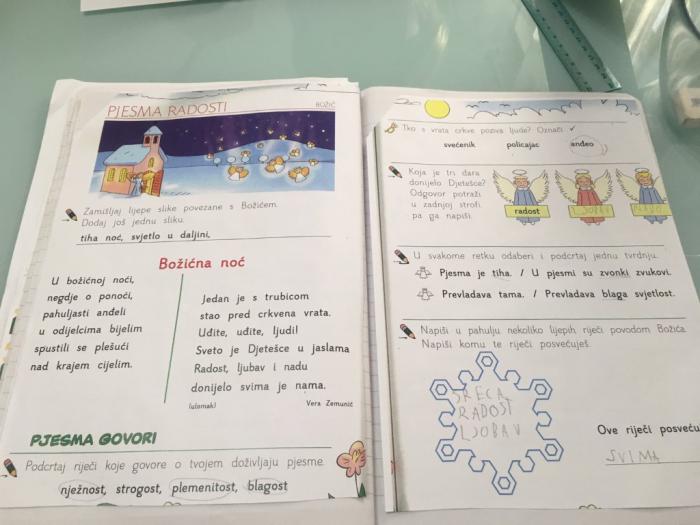 PJESMA RADOSTI
BOŽIĆ
Zamišljaj lijepe slike povezane s Božićem.
Dodaj još jednu sliku.
tiha noć, svjetlo u daljini,
Božićna noć
U božićnoj noći,
negdje o ponoći,
pahuljasti anđeli
u odijelcima bijelim
spustili se plešući
nad krajem cijelim.
Jedan je s trubicom
stao pred crkvena vrata.
Uđite, uđite, ljudi!
Sveto je Djetešce u jaslama
Radost, ljubav i nadu
donijelo svima je nama.
(ulomak)
Vera Zemunić
PJESMA GOVORI
Podcrtaj riječi koje govore o tvojem doživljaju pjesme.
nježnost, strogost, plemenitost, blagost
Tko s vrata crkve poziva ljude? Označi ✓
svećenik policajac anđeo
Koja je tri dara
donijelo Djetešce?
Odgovor potraži
u zadnjoj strofi
pa ga napiši.
radost LJUBAV NADU
U svakome retku odaberi i podcrtaj jednu tvrdnju.
Pjesma je tiha. / U pjesmi su zvonki zvukovi.
Prevladava tama. / Prevladava blaga svjetlost.
Napiši u pahulju nekoliko lijepih riječi povodom Božića.
Napiši komu te riječi posvećuješ.
SREĆA
RADOST
LJUBAV
Ove riječi posveću
SVIMA